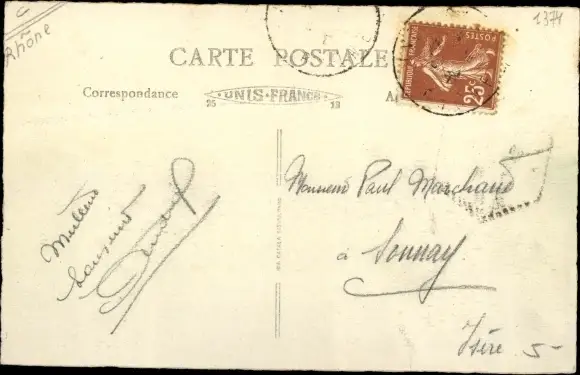 Rhône
1374
CARTE POSTALE
Correspondance
25 UNIS-FRANCE 13
REPUBLIQUE FRANÇAISE
POSTES
25
Meilleurs
Monsieur Paul Marchand
à Sonnay
Isère
5-